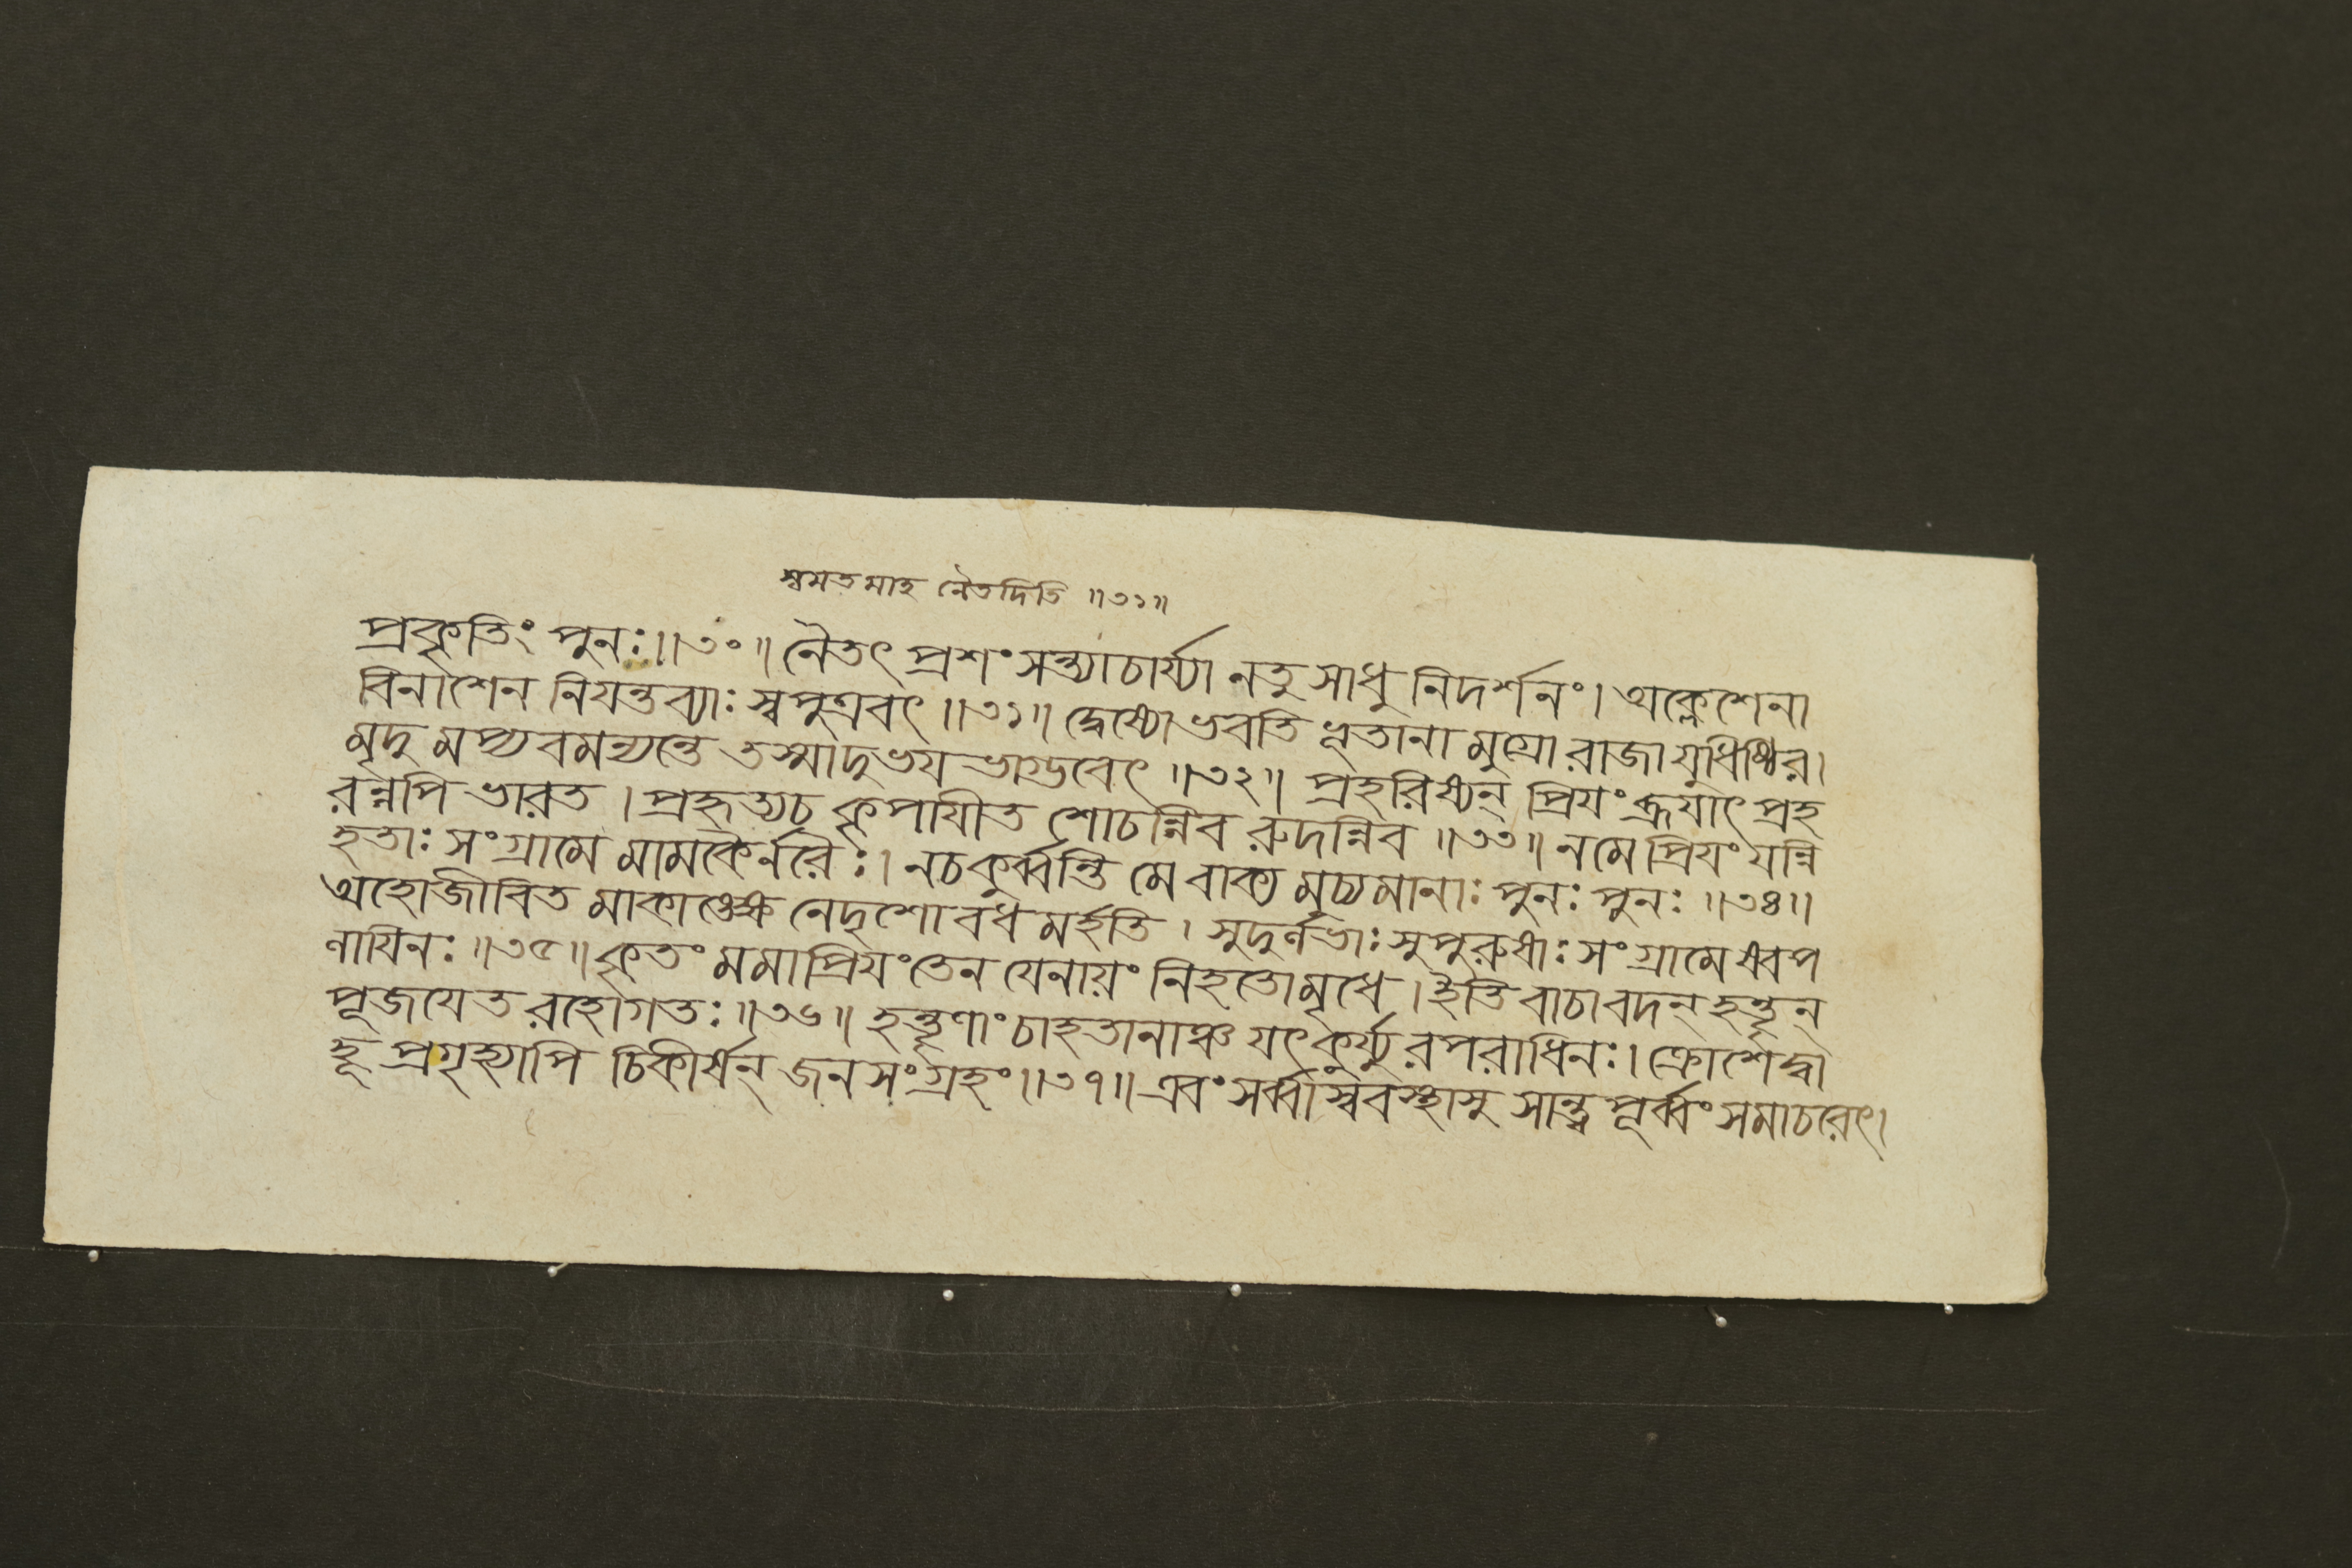 স্বমতমাহ নৈতদিতি ॥৩১॥
প্রকৃতিং পুনঃ॥৩০॥ নৈতৎ প্রশংসন্ত্যাচার্য্যা নতু সাধু নিদর্শনং। অক্লেশেনা
বিনাশেন নিযন্তব্যাঃ স্বপুত্রবৎ ॥৩১॥ দ্বেষ্যোভবতি ভূতানা মুগ্রো রাজা যুধিষ্ঠির।
মৃদু মপ্যবমন্যন্তে তস্মাদুভয ভাগ্ভবেৎ ॥৩২॥ প্রহরিষ্যন্ প্রিযং ব্রূযাৎ প্রহ
রন্নপি ভারত। প্রহৃত্যচ কৃপাযীত শোচন্নিব রুদন্নিব ॥৩৩॥ নমে প্রিযং যন্নি
হতাঃ সংগ্রামে মামকৈর্নরৈঃ। নচকুর্ব্বন্তি মে বাক্য মুচ্যমানাঃ পুনঃ পুনঃ ॥৩৪॥
অহোজীবিত মাকাঙ্ক্ষে নেদৃশো বধ মর্হতি। সুদুর্লভাঃ সুপুরুষাঃ সংগ্রামেষ্বপ
লাযিনঃ ॥৩৫॥ কৃতং মমাপ্রিযং তেন যেনায়ং নিহতোমৃধে। ইতি বাচাবদন্ হন্তৄন্
পূজযেত রহোগতঃ ॥৩৬॥ হন্তৄণাং চাহতানাঞ্চ যৎকুর্য্যু রপরাধিনঃ। ক্রোশেদ্বা
হূ প্রগৃহ্যাপি চিকীর্ষন্ জনসংগ্রহং॥৩৭॥ এবং সর্ব্বাস্ববস্থাসু সান্ত্ব পূর্ব্বং সমাচরেৎ।